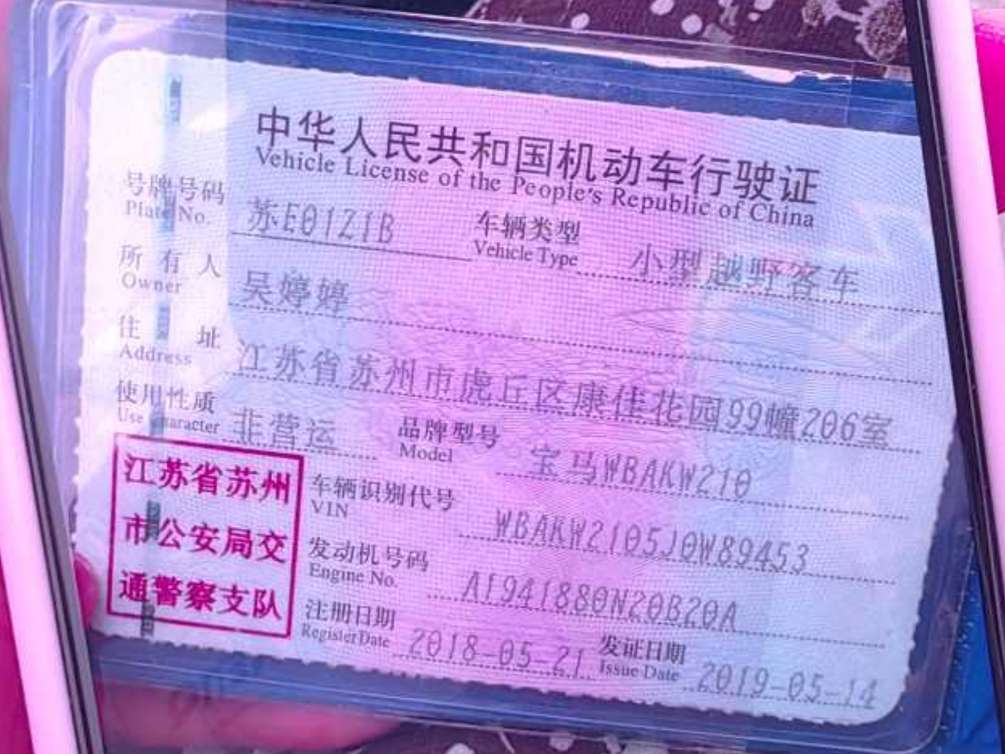 中华人民共和国机动车行驶证
Vehicle License of the People's Republic of China
号牌号码 苏E01Z1B 车辆类型 小型越野客车
Plate No. Vehicle Type
所有人 吴婷婷
Owner
住址 江苏省苏州市虎丘区康佳花园99幢206室
Address
使用性质 非营运 品牌型号 宝马WBAKW210
Use Character Model
江苏省苏州
市公安局交
通警察支队
车辆识别代号 WBAKW2105J0W89453
VIN
发动机号码 A1941880N20B20A
Engine No.
注册日期 2018-05-21 发证日期 2019-05-14
Register Date Issue Date